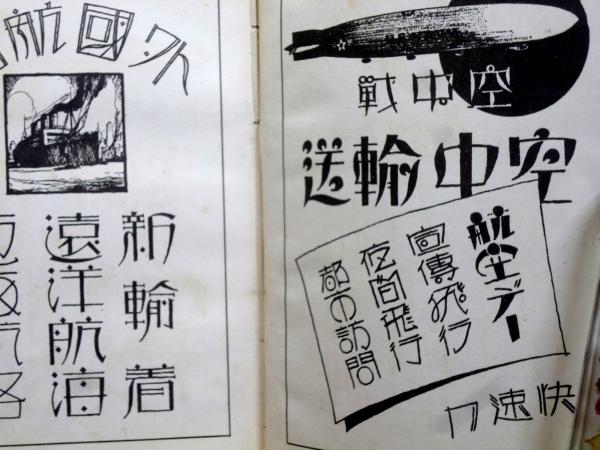 空中戦
空中輸送
航空デー
宣傳飛行
夜間飛行
都市訪問
快速力
外國航
新輸着
遠洋航海